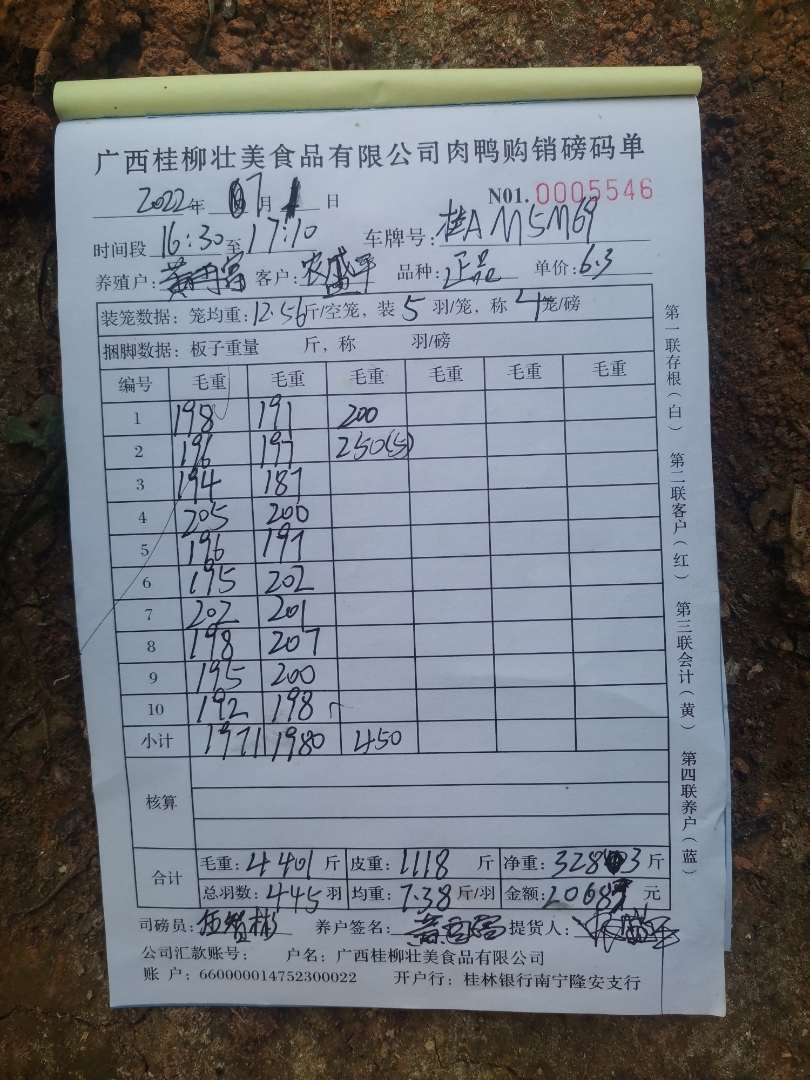 广西桂柳壮美食品有限公司肉鸭购销磅码单
2022年 07月 1日 N01. 0005546
时间段 16:30至17:10 车牌号: 桂A M5M69
养殖户: 客户: 农盛平 品种: 正品 单价: 6.3
装笼数据: 笼均重: 12.56斤/空笼, 装5羽/笼, 称4笼/磅
捆脚数据: 板子重量 斤, 称 羽/磅
编号 毛重 毛重 毛重 毛重 毛重 毛重
1 198 191 200
2 196 197 250(5)
3 194 187
4 205 200
5 196 197
6 195 202
7 202 201
8 198 207
9 195 200
10 192 198
小计 1971 1980 450
核算
合计 毛重: 4401斤 皮重: 1118斤 净重: 3283斤
总羽数: 445羽 均重: 7.38斤/羽 金额: 元
司磅员: 伍智彬 养户签名: 提货人:
公司汇款账号: 户名: 广西桂柳壮美食品有限公司
账 户: 660000014752300022 开户行: 桂林银行南宁隆安支行
第一联存根(白) 第二联客户(红) 第三联会计(黄) 第四联养户(蓝)